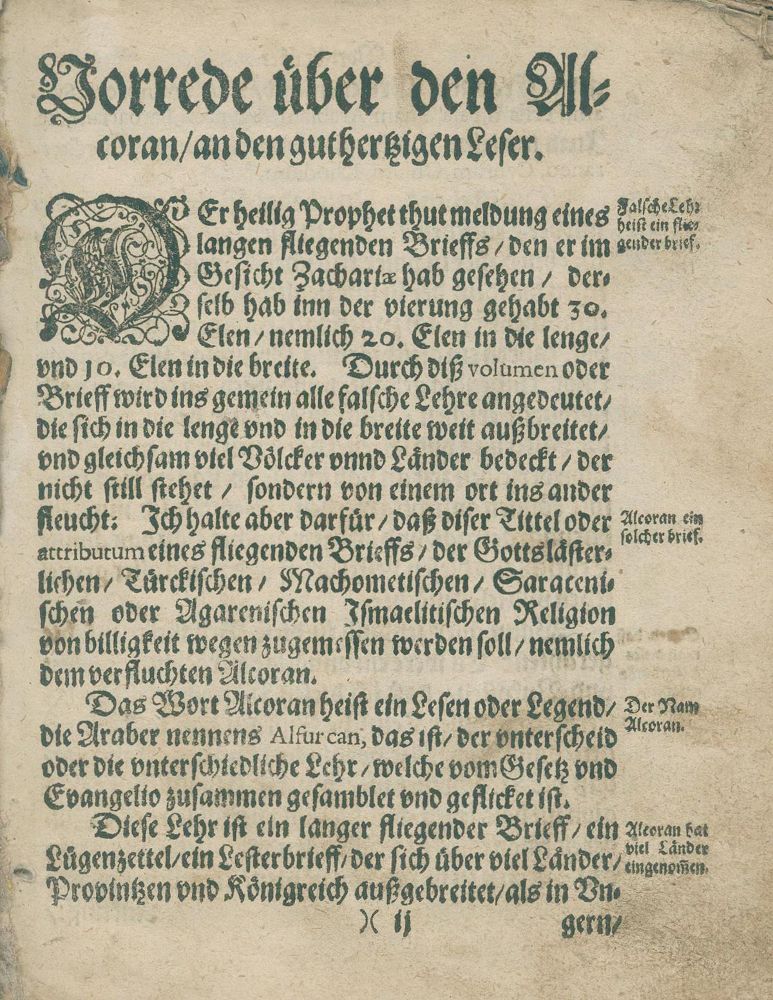 Vorrede über den Al-
coran/ an den guthertzigen Leser.
DEr heilig Prophet thut meldung eines
langen fliegenden Brieffs/ den er im
Gesicht Zachariæ hab gesehen/ der-
selb hab inn der vierung gehabt 30.
Elen/ nemlich 20. Elen in die lenge/
vnd 10. Elen in die breite. Durch diß volumen oder
Brieff wird ins gemein alle falsche Lehre angedeutet/
die sich in die lenge vnd in die breite weit außbreitet/
vnd gleichsam viel Völcker vnnd Länder bedeckt/ der
nicht still stehet/ sondern von einem ort ins ander
fleucht: Ich halte aber darfür/ daß diser Tittel oder
attributum eines fliegenden Brieffs/ der Gottsläster-
lichen/ Türckischen/ Machometischen/ Saraceni-
schen oder Agarenischen Ismaelitischen Religion
von billigkeit wegen zugemessen werden soll/ nemlich
dem verfluchten Alcoran.
Das Wort Alcoran heist ein Lesen oder Legend/
die Araber nennens Alfurcan, das ist/ der vnterscheid
oder die vnterschiedliche Lehr/ welche vom Gesetz vnd
Evangelio zusammen gesamblet vnd geflicket ist.
Diese Lehr ist ein langer fliegender Brieff/ ein
Lügenzettel/ ein Lesterbrieff/ der sich über viel Länder/
Provintzen vnd Königreich außgebreitet/ als in Vn-
)( ij gern/
Falsche Lehr
heist ein flie-
gender brief.
Alcoran ein
solcher brief.
Der Nam
Alcoran.
Alcoran hat
viel Länder
eingenom̃en.